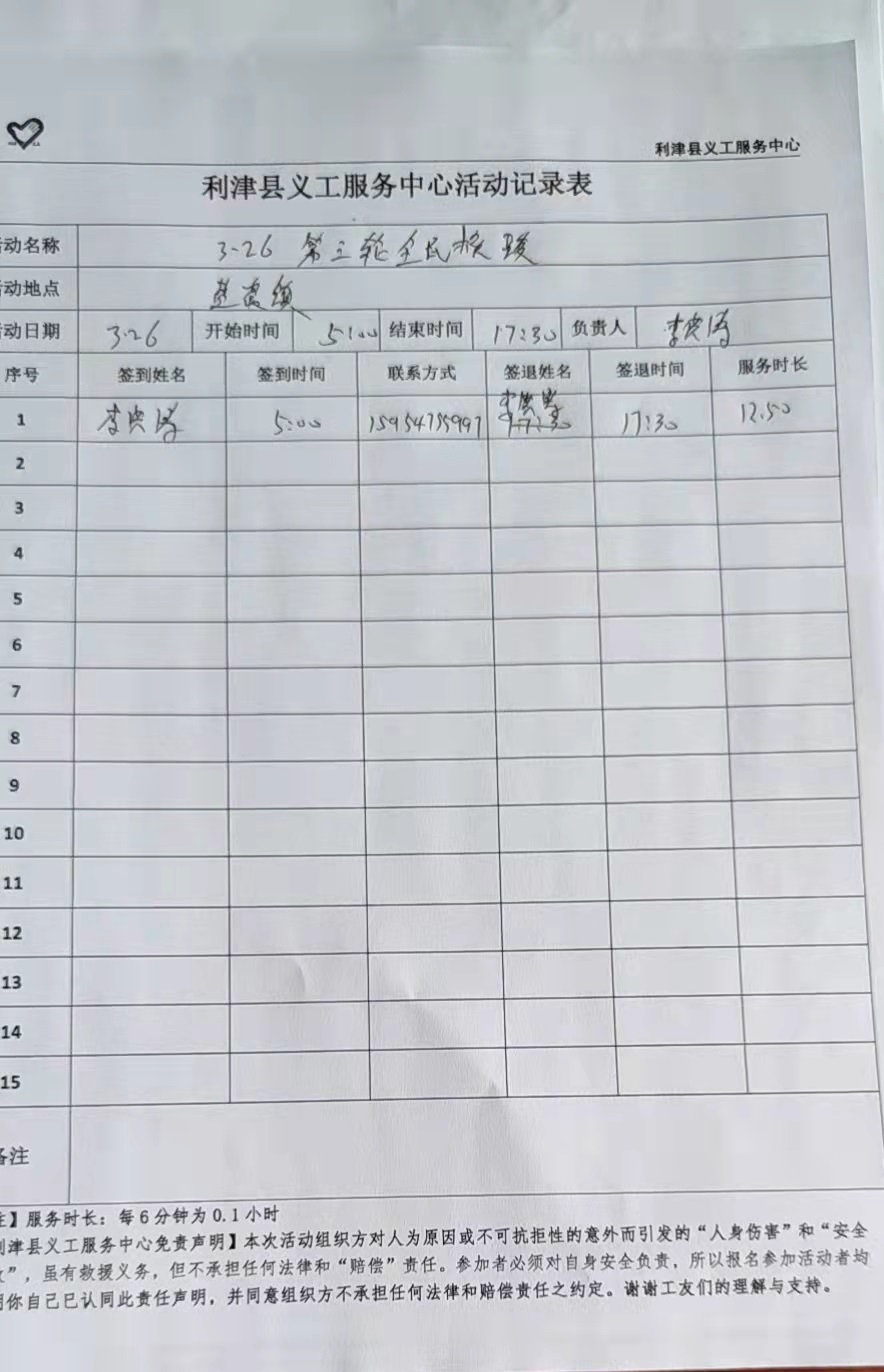 利津县义工服务中心
利津县义工服务中心活动记录表
动名称 3-26 第三轮全民核酸
动地点
动日期 3.26 开始时间 5:00 结束时间 17:30 负责人 李
序号 签到姓名 签到时间 联系方式 签退姓名 签退时间 服务时长
1 李 5:00 15954755997 李 17:30 17:30 12.50
2
3
4
5
6
7
8
9
10
11
12
13
14
15
备注
注】服务时长：每6分钟为0.1小时
利津县义工服务中心免责声明】本次活动组织方对人为原因或不可抗拒性的意外而引发的“人身伤害”和“安全
”，虽有救援义务，但不承担任何法律和“赔偿”责任。参加者必须对自身安全负责，所以报名参加活动者均
明你自己已认同此责任声明，并同意组织方不承担任何法律和赔偿责任之约定。谢谢工友们的理解与支持。